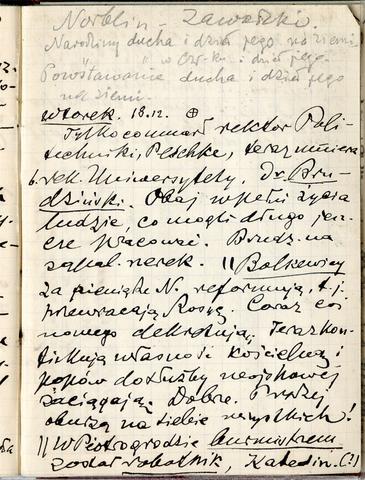 Norblin – Zawadzki.
Narodziny ducha i dzieje jego na ziemi
Powstawanie ducha i dzieje jego
na ziemi.
Wtorek. 18.12. ⊕
Tylko co umarł rektor Poli-
techniki, Patschke, teraz umiera
b. rek. Uniwersytetu, Dr. Bru-
dziński. Obaj w pełni życia
ludzie, co mogli długo jesz-
cze pracować. Brudz. na
zapal. nerek. || Bolszewicy
za pieniądze N. reformują, t.j.
przewracają Rosyę. Coraz coś
nowego dekretują, teraz kon-
fiskują własność kościelną i
popów do służby wojskowej
zaciągają. Dobrze. Prędzej
oburzą na siebie wszystkich!
|| W Piotrogrodzie burmistrzem
został robotnik, Kaledin. (?)